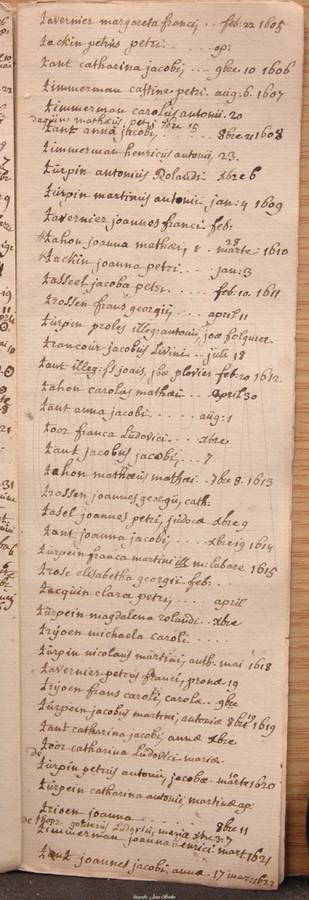 tavernier margareta francij .. feb: 22 1605
tackin petrus petri ..... sep:
tant catharina jacobi, ... 9bre 10 1606
timmerman petri. aug: 6. 1607
timmerman carolus antonii. 20
mathæus petri 15
tant anna jacobi, ... 8bre 21 1608
timmerman henricus antonii, 23.
turpin antonius Rolandi. xbre 6
turpin martinus antonii, jan: 4 1609
tavernier joannes franci. feb:
tahon joanna mathæi, 28 marte: 1610
tackin joanna petri... jan: 3
tasseel jacoba petri ... feb: 10. 1611
trossen frans georgii, ... april 11
turpin proles illeg: antonii, joæ folquier
trancour jacobus Livini .. julii 18
tant illeg: joais, joæ plovier feb: 20 1612
tahon carolus mathæi ... april 30
tant anna jacobi ..... aug: 1
toor franca Ludovici ... xbre
tant jacobus jacobi, ... 7
tahon mathæus mathæi .. 7bre 8 1613
trossen joannes georgii, cath:
tasel joannes petri, judocæ xbre 9
tant joanna jacobi, ... xbre 19 1614
turpein franca martini ill m: labare 1615
trose elisabetha georgii. feb: ..
tacquin clara petri, .... april
turpein magdalena rolandi .. xbre
trijoen michaela caroli ....
turpin nicolaus martini, auth. mai 1618
tavernier petrus franci, pronæ 19
trijoen frans caroli, carola .. 9bre
turpein jacobus martini, antoniæ 8bre 19 1619
tant catharina jacobi, annæ xbre
toor catharina Ludovici mariæ.
turpin petrus antonii, jacobæ. marte 1620
turpein catharina antonii, martinæ ap:
trioen joanna ...... 8bre 11
Ludovici, maria xbre 27
timmerman joanna henrici. mart 1621
tant joannes jacobi. anna. 17 mar: 1622